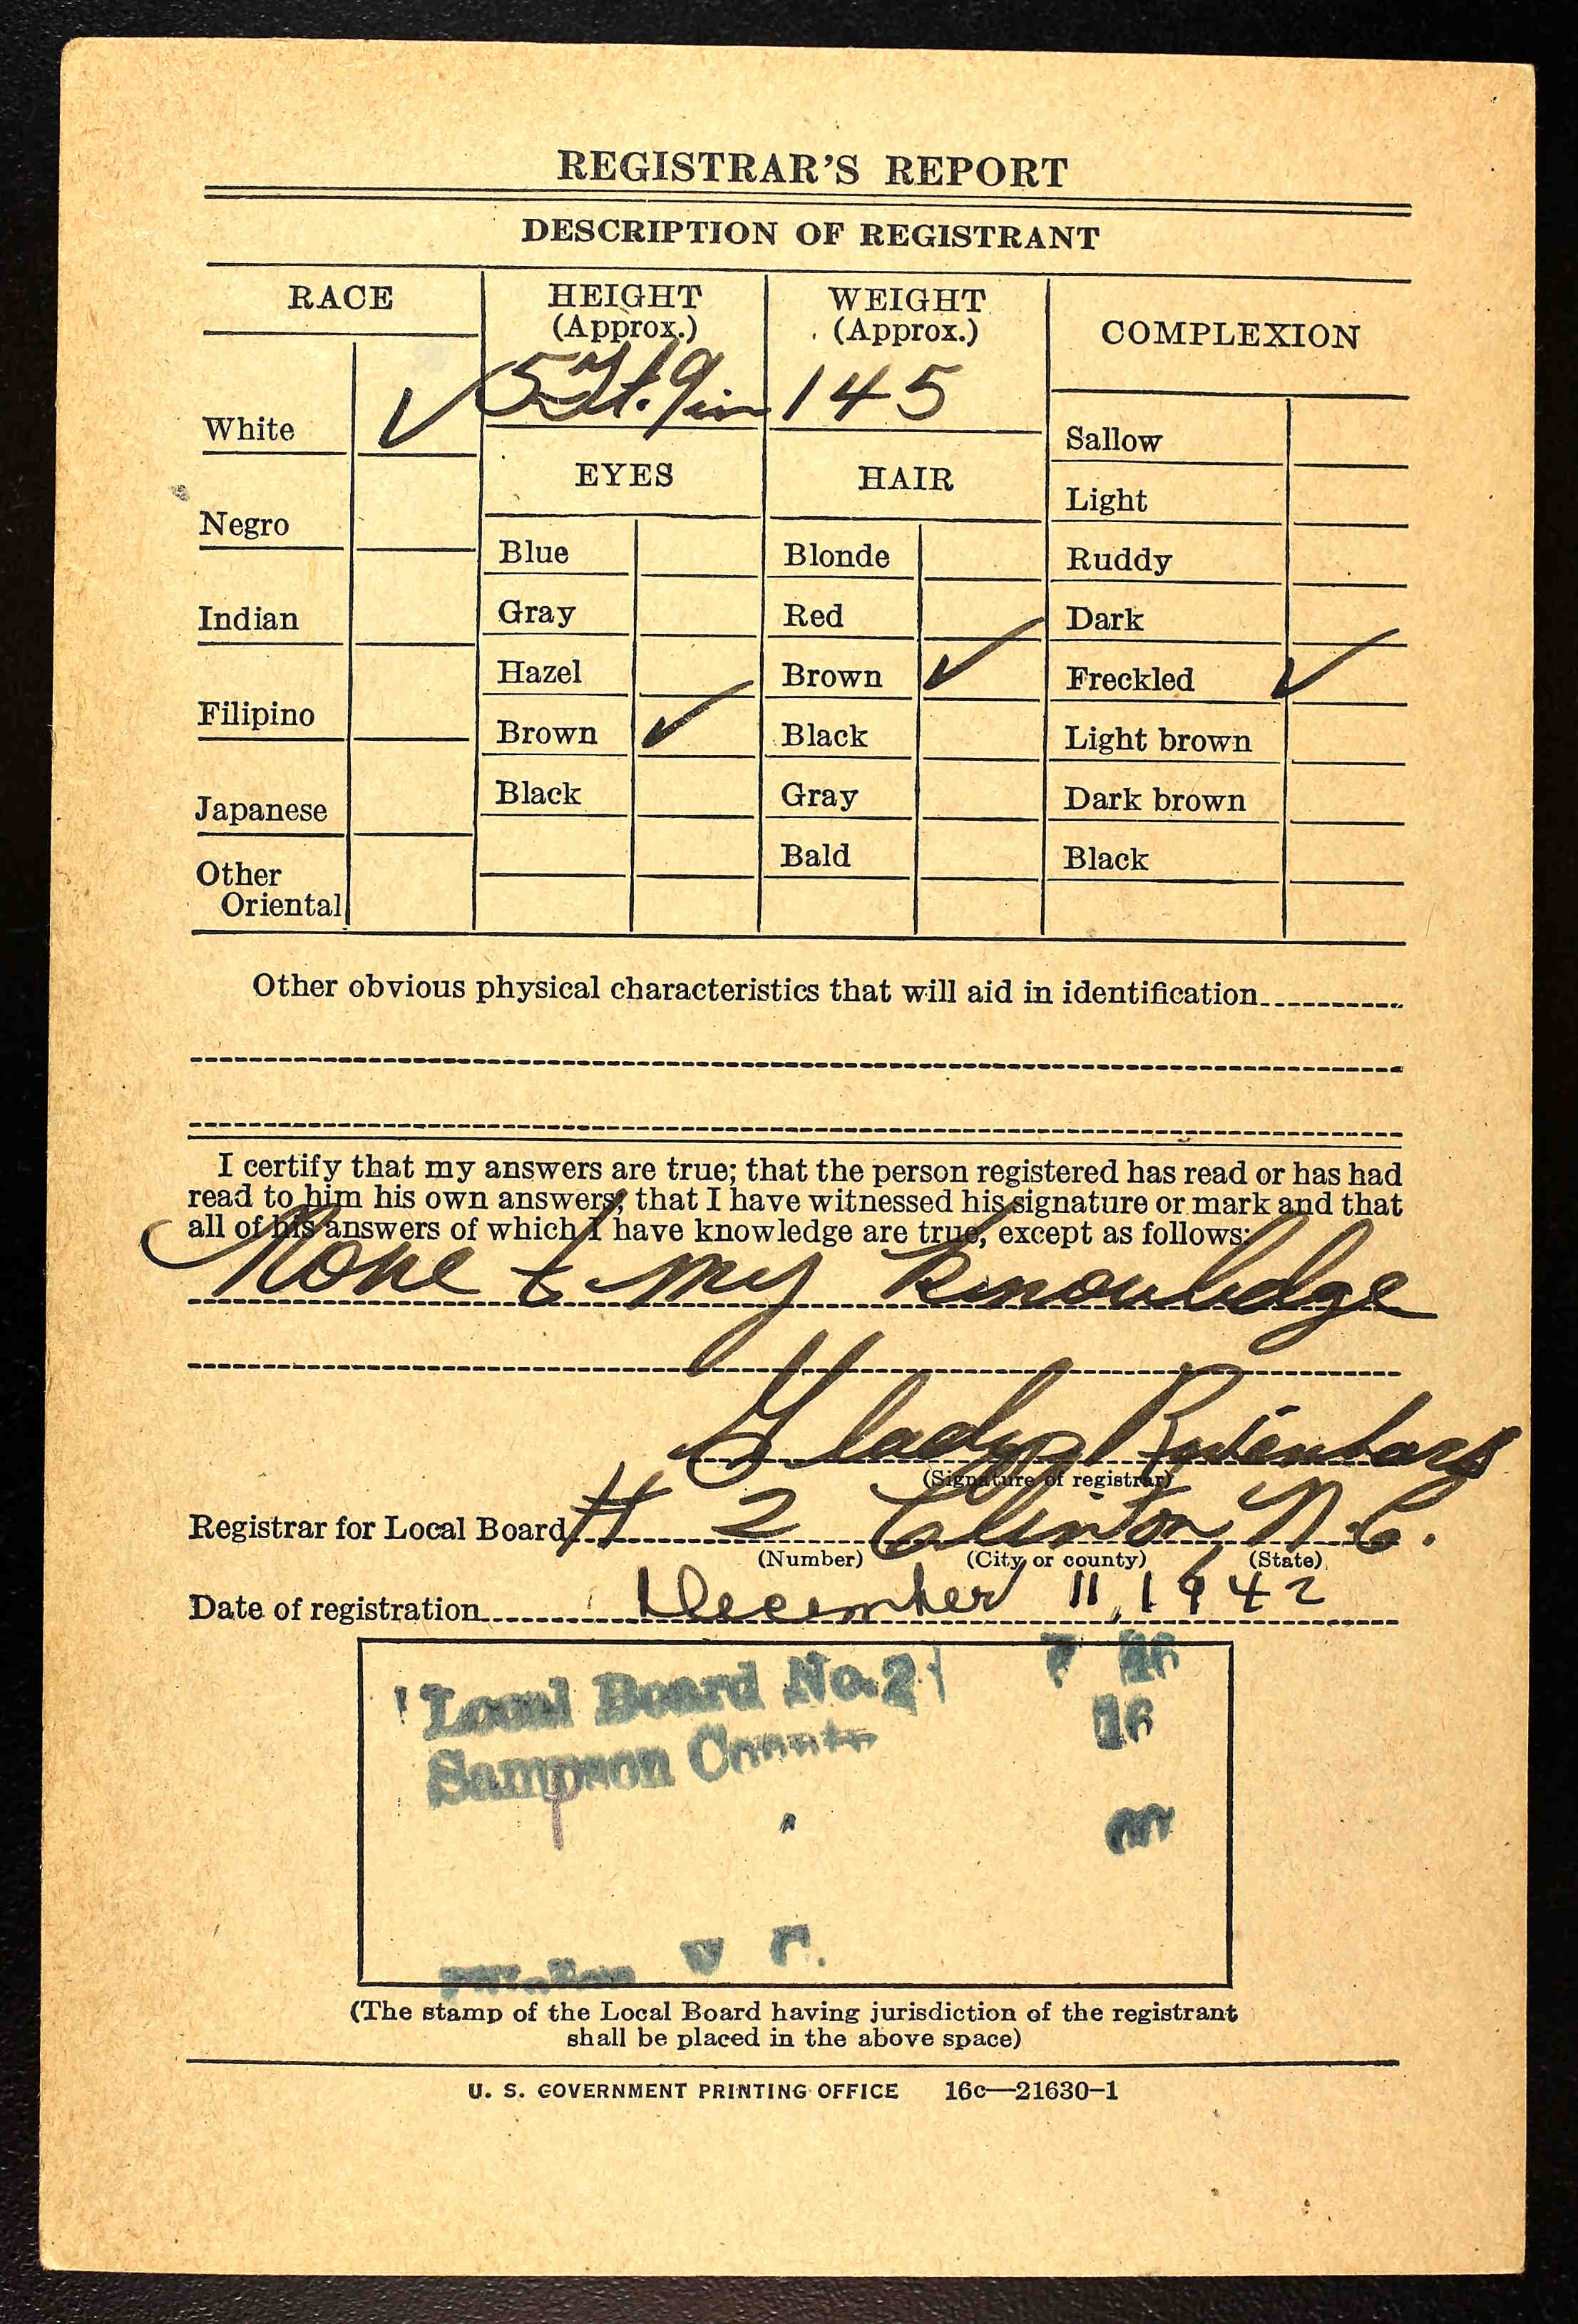 REGISTRAR'S REPORT
DESCRIPTION OF REGISTRANT
RACE
White ✓
Negro
Indian
Filipino
Japanese
Other
Oriental
HEIGHT
(Approx.)
5 ft. 9 in
EYES
Blue
Gray
Hazel
Brown ✓
Black
WEIGHT
(Approx.)
145
HAIR
Blonde
Red
Brown ✓
Black
Gray
Bald
COMPLEXION
Sallow
Light
Ruddy
Dark
Freckled ✓
Light brown
Dark brown
Black
Other obvious physical characteristics that will aid in identification
I certify that my answers are true; that the person registered has read or has had
read to him his own answers; that I have witnessed his signature or mark and that
all of his answers of which I have knowledge are true, except as follows:
None to my knowledge
Gladys
(Signature of registrar)
Registrar for Local Board # 2 Clinton N.C.
(Number) (City or county) (State)
Date of registration December 11, 1942
Local Board No. 2
Sampson County
(The stamp of the Local Board having jurisdiction of the registrant
shall be placed in the above space)
U. S. GOVERNMENT PRINTING OFFICE 16c—21630-1